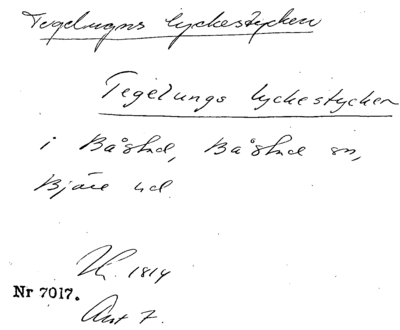 Tegelugns lyckestycken
Tegelungs lyckestycken
i Båstad, Båstad sn,
Bjäre hd
1814
Nr 7017.
Akt 7.